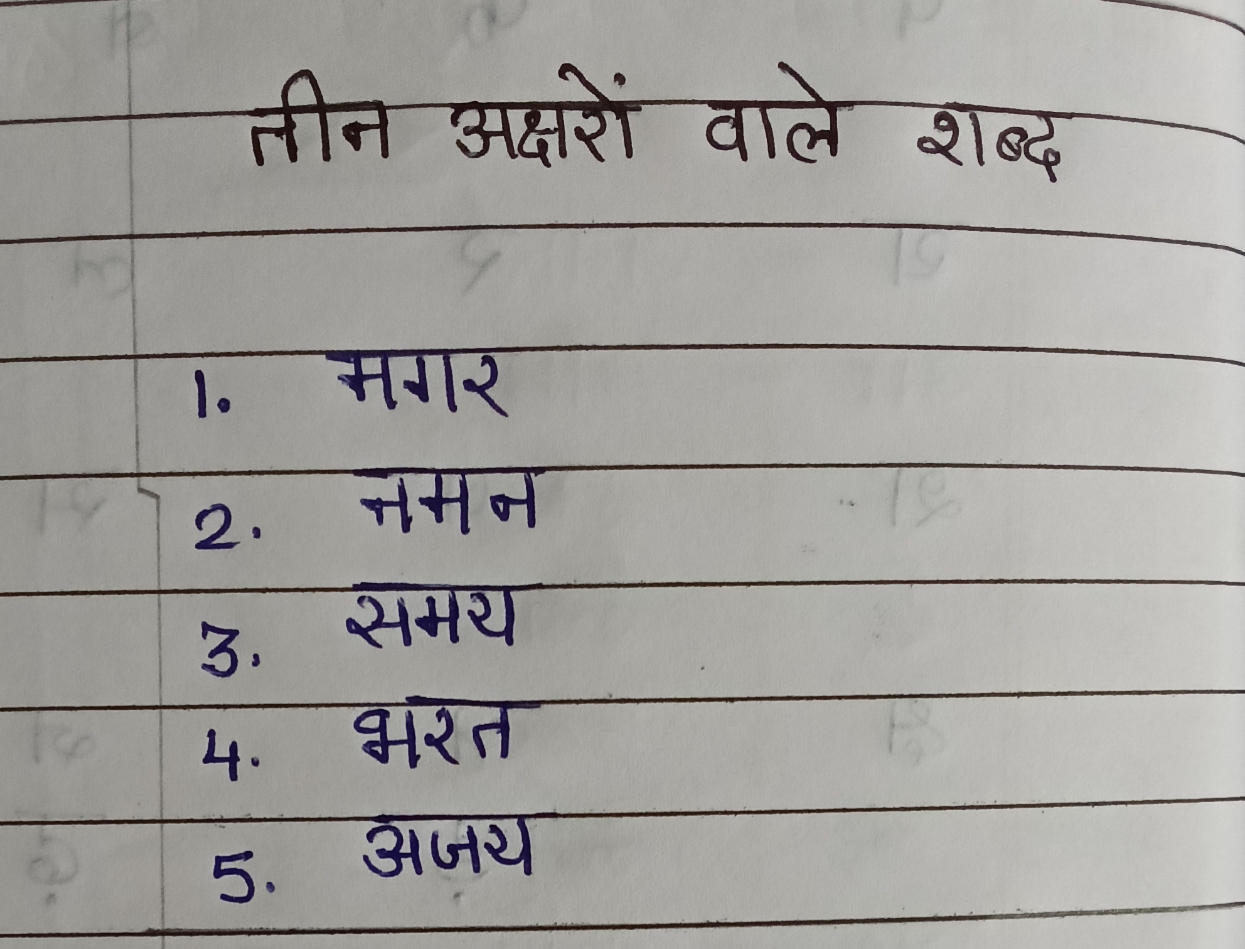 तीन अक्षरों वाले शब्द
1. मगर
2. नमन
3. समय
4. भरत
5. अजय